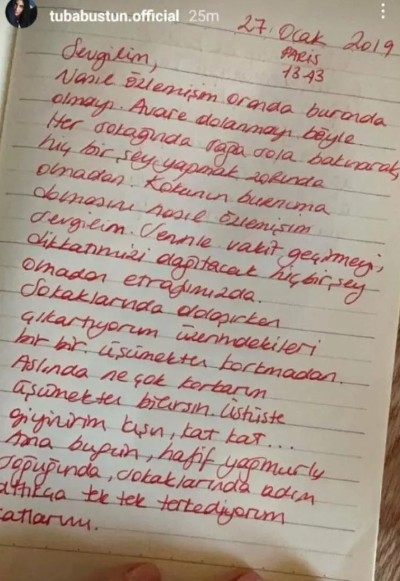 tubabustun.official 25m
27. Ocak 2019
PARİS
13.43
Sevgilim,
Nasıl özlemişim oranda buranda
olmayı. Avare dolanmayı böyle
Her sokağında sağa sola bakınarak,
hiç bir şey yapmak zorunda
olmadan. Kokunun burnuma
dolmasını nasıl özlemişim
sevgilim. Seninle vakit geçirmeyi,
dikkatimizi dağıtacak hiç bir şey
olmadan etrafımızda.
Sokaklarında dolaşırken
çıkartıyorum üzerimdekileri
bir bir. Üşümekten korkmadan.
Aslında ne çok korkarım
üşümekten bilirsin. Üstüste
giyinirim kışın, kat kat...
Ama bugün, hafif yağmurlu
soğuğunda, sokaklarında adım
attıkça tek tek terkediyorum
katlarımı.